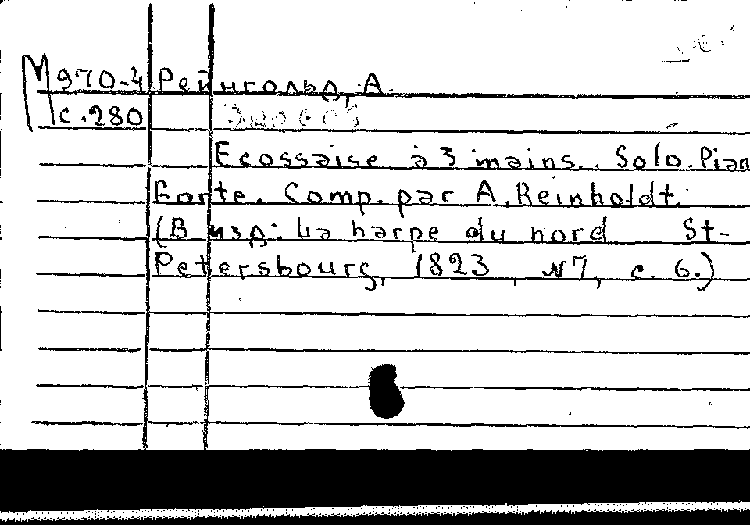 М970-4 Рейнгольд, А.
с.280
Ecossaise à 3 mains. Solo. Pian
Forte. Comp. par A. Reinholdt.
(В изд: La harpe du nord St-
Petersbourg, 1823, N7, с. 6.)